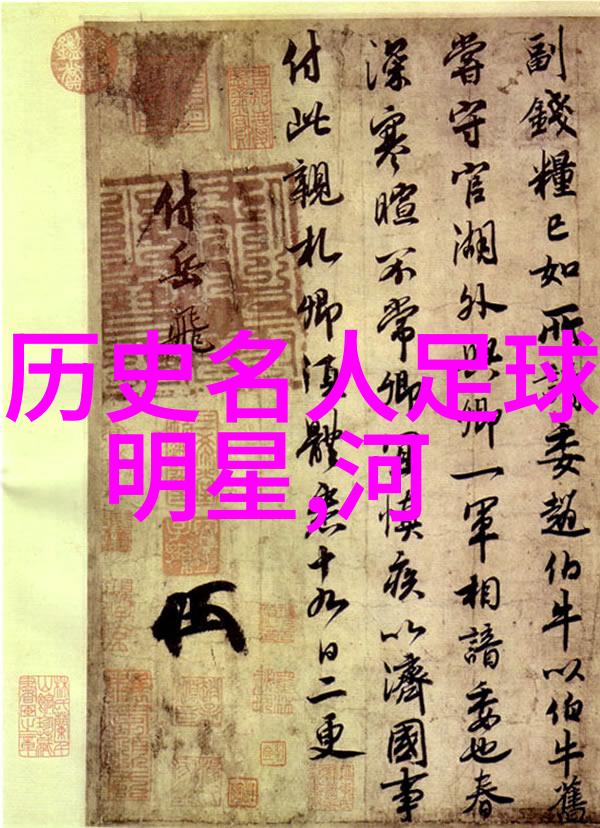 历史名人足球
明星,河
副錢糧已如所請委趙伯牛以伯牛舊
嘗守官湖外與卿一軍相諳委也春
深寒暄不常卿宜慎疾以濟國事
付此親札卿須體悉十九日二更
付岳飛